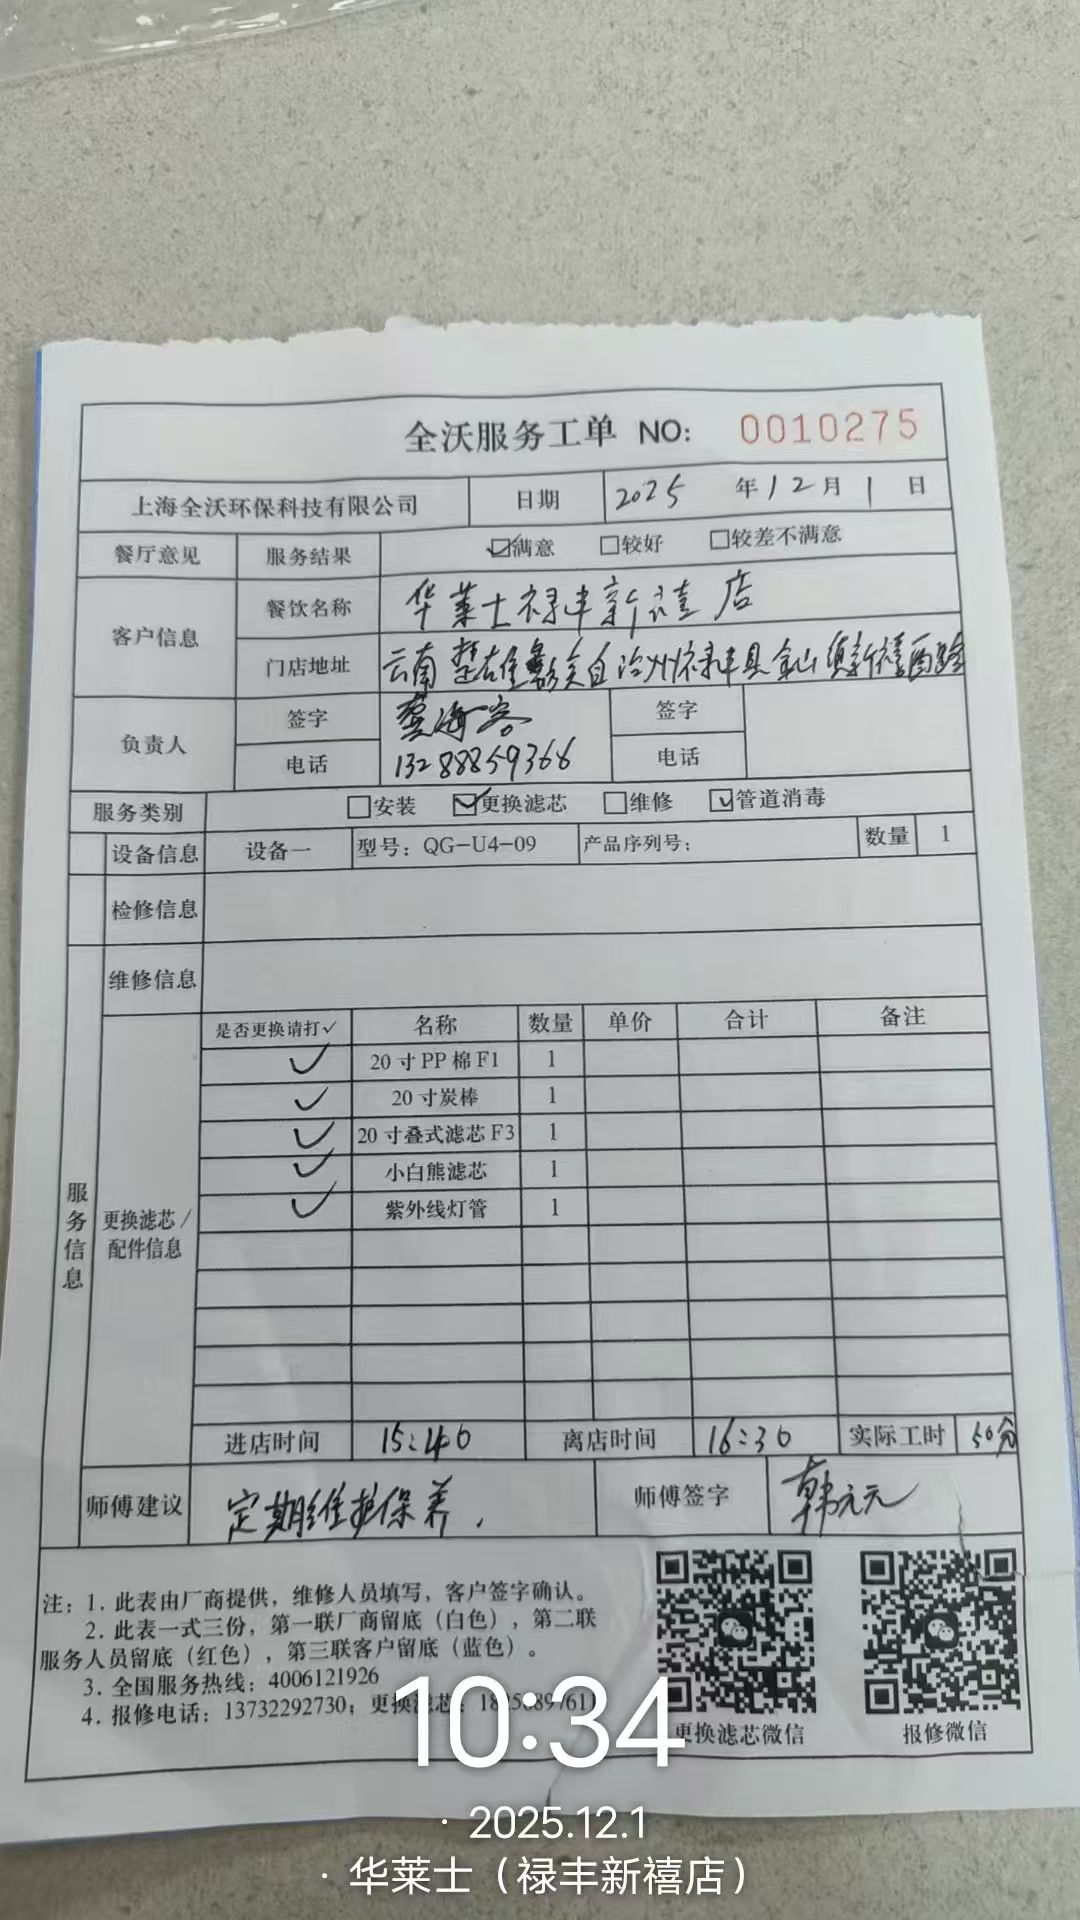 全沃服务工单 NO: 0010275
上海全沃环保科技有限公司 日期 2025 年 12 月 1 日
餐厅意见 服务结果 ☑满意 ☐较好 ☐较差不满意
客户信息 餐饮名称 华莱士禄丰新禧店
门店地址 云南楚雄彝族自治州禄丰县金山镇新禧
负责人 签字 海客 签字
电话 13288859366 电话
服务类别 ☐安装 ☑更换滤芯 ☐维修 ☑管道消毒
设备信息 设备一 型号：QG-U4-09 产品序列号： 数量 1
检修信息
维修信息
服务信息
更换滤芯/
配件信息
是否更换请打✓ 名称 数量 单价 合计 备注
✓ 20寸PP棉F1 1
✓ 20寸炭棒 1
✓ 20寸叠式滤芯F3 1
✓ 小白熊滤芯 1
✓ 紫外线灯管 1
进店时间 15:40 离店时间 16:30 实际工时 50分
师傅建议 定期维护保养. 师傅签字 韩元元
注：1. 此表由厂商提供，维修人员填写，客户签字确认。
2. 此表一式三份，第一联厂商留底（白色），第二联
服务人员留底（红色），第三联客户留底（蓝色）。
3. 全国服务热线：4006121926
4. 报修电话：13732292730；更换滤芯：
更换滤芯微信 报修微信
10:34
· 2025.12.1
· 华莱士（禄丰新禧店）